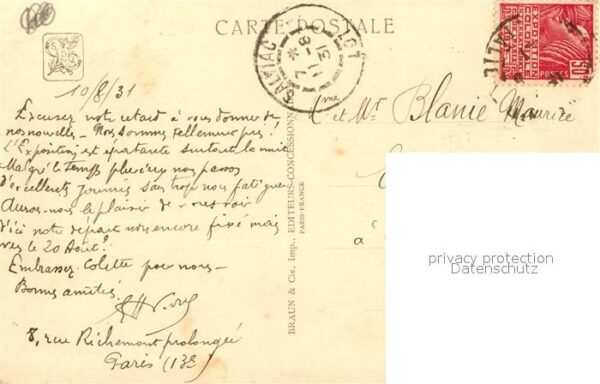 CARTE POSTALE
SALVIAC
LOT
11-8
31
EXPOSITION
COLONIALE
INTERNATIONALE
PARIS 1931
POSTES
50c
10/8/31
Excusez notre retard à vous donner de
nos nouvelles - Nous sommes tellement pris!
L'Exposition est épatante surtout la nuit
Malgré le temps pluvieux nous passons
d'excellentes journées sans trop nous fatiguer
Aurons-nous le plaisir de vous voir
d'ici notre départ non encore fixé mais
vers le 20 Août?
Embrassez Colette pour nous -
Bonnes amitiés.
8, rue Richemont prolongée
Paris (13E)
BRAUN & Cie, Imp., EDITEURS-CONCESSIONN
PARIS-FRANCE
Mme et Mr Blanié Maurice
à
privacy protection
Datenschutz